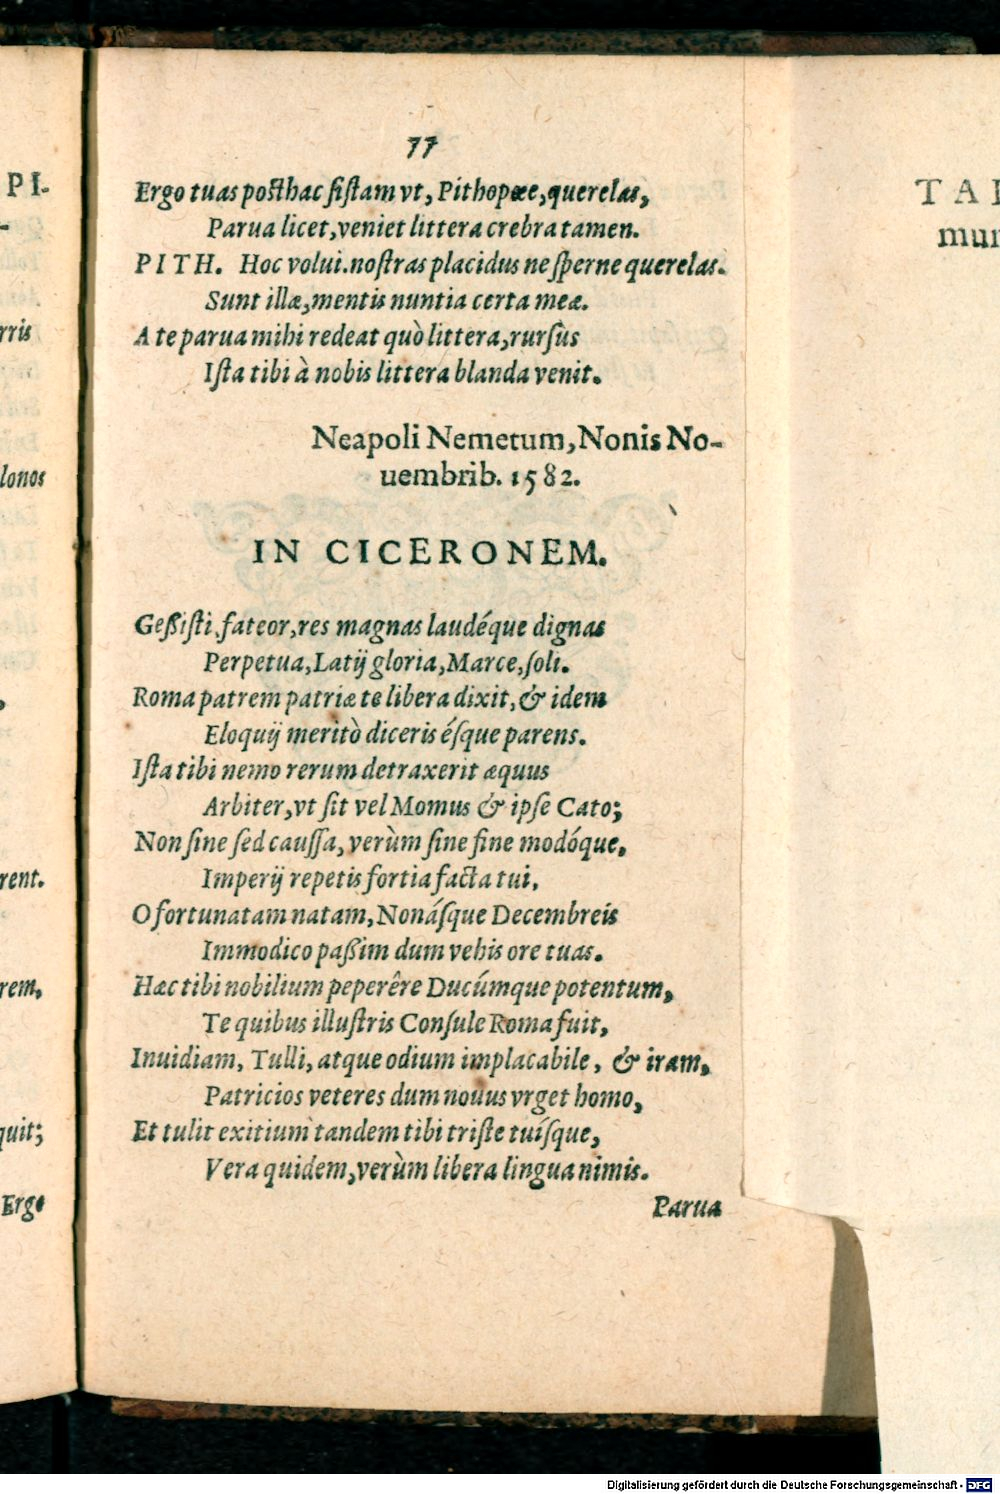 77
Ergo tuas posthac sistam vt, Pithopœe, querelas,
Parua licet, veniet littera crebra tamen.
PITH. Hoc volui. nostras placidus ne sperne querelas.
Sunt illæ, mentis nuntia certa meæ.
A te parua mihi redeat quò littera, rursùs
Ista tibi à nobis littera blanda venit.
Neapoli Nemetum, Nonis No-
uembrib. 1582.
IN CICERONEM.
Geßisti, fateor, res magnas laudéque dignas
Perpetua, Latij gloria, Marce, soli.
Roma patrem patriæ te libera dixit, & idem
Eloquij meritò diceris ésque parens.
Ista tibi nemo rerum detraxerit æquus
Arbiter, vt sit vel Momus & ipse Cato;
Non sine sed caussa, verùm sine fine modóque,
Imperij repetis fortia facta tui,
O fortunatam natam, Nonásque Decembreis
Immodico paßim dum vehis ore tuas.
Hæc tibi nobilium peperêre Ducúmque potentum,
Te quibus illustris Consule Roma fuit,
Inuidiam, Tulli, atque odium implacabile, & iram,
Patricios veteres dum nouus vrget homo,
Et tulit exitium tandem tibi triste tuísque,
Vera quidem, verùm libera lingua nimis.
Parua
PI-
rris
lonos
rent.
rem,
quit;
Ergo
TAB
mun
Digitalisierung gefördert durch die Deutsche Forschungsgemeinschaft - DFG